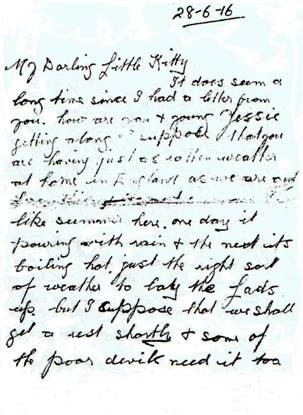 28-6-16
My Darling Little Kitty
It does seem a
long time since I had a letter from
you. how are you & young Jessie
getting along I suppose that you
are having just as rotten weather
at home in England as we are and
like summer here. one day it
pouring with rain & the next its
boiling hot, just the right sort
of weather to lay the lads
up, but I suppose that we shall
get a rest shortly & some of
the poor devils need it too